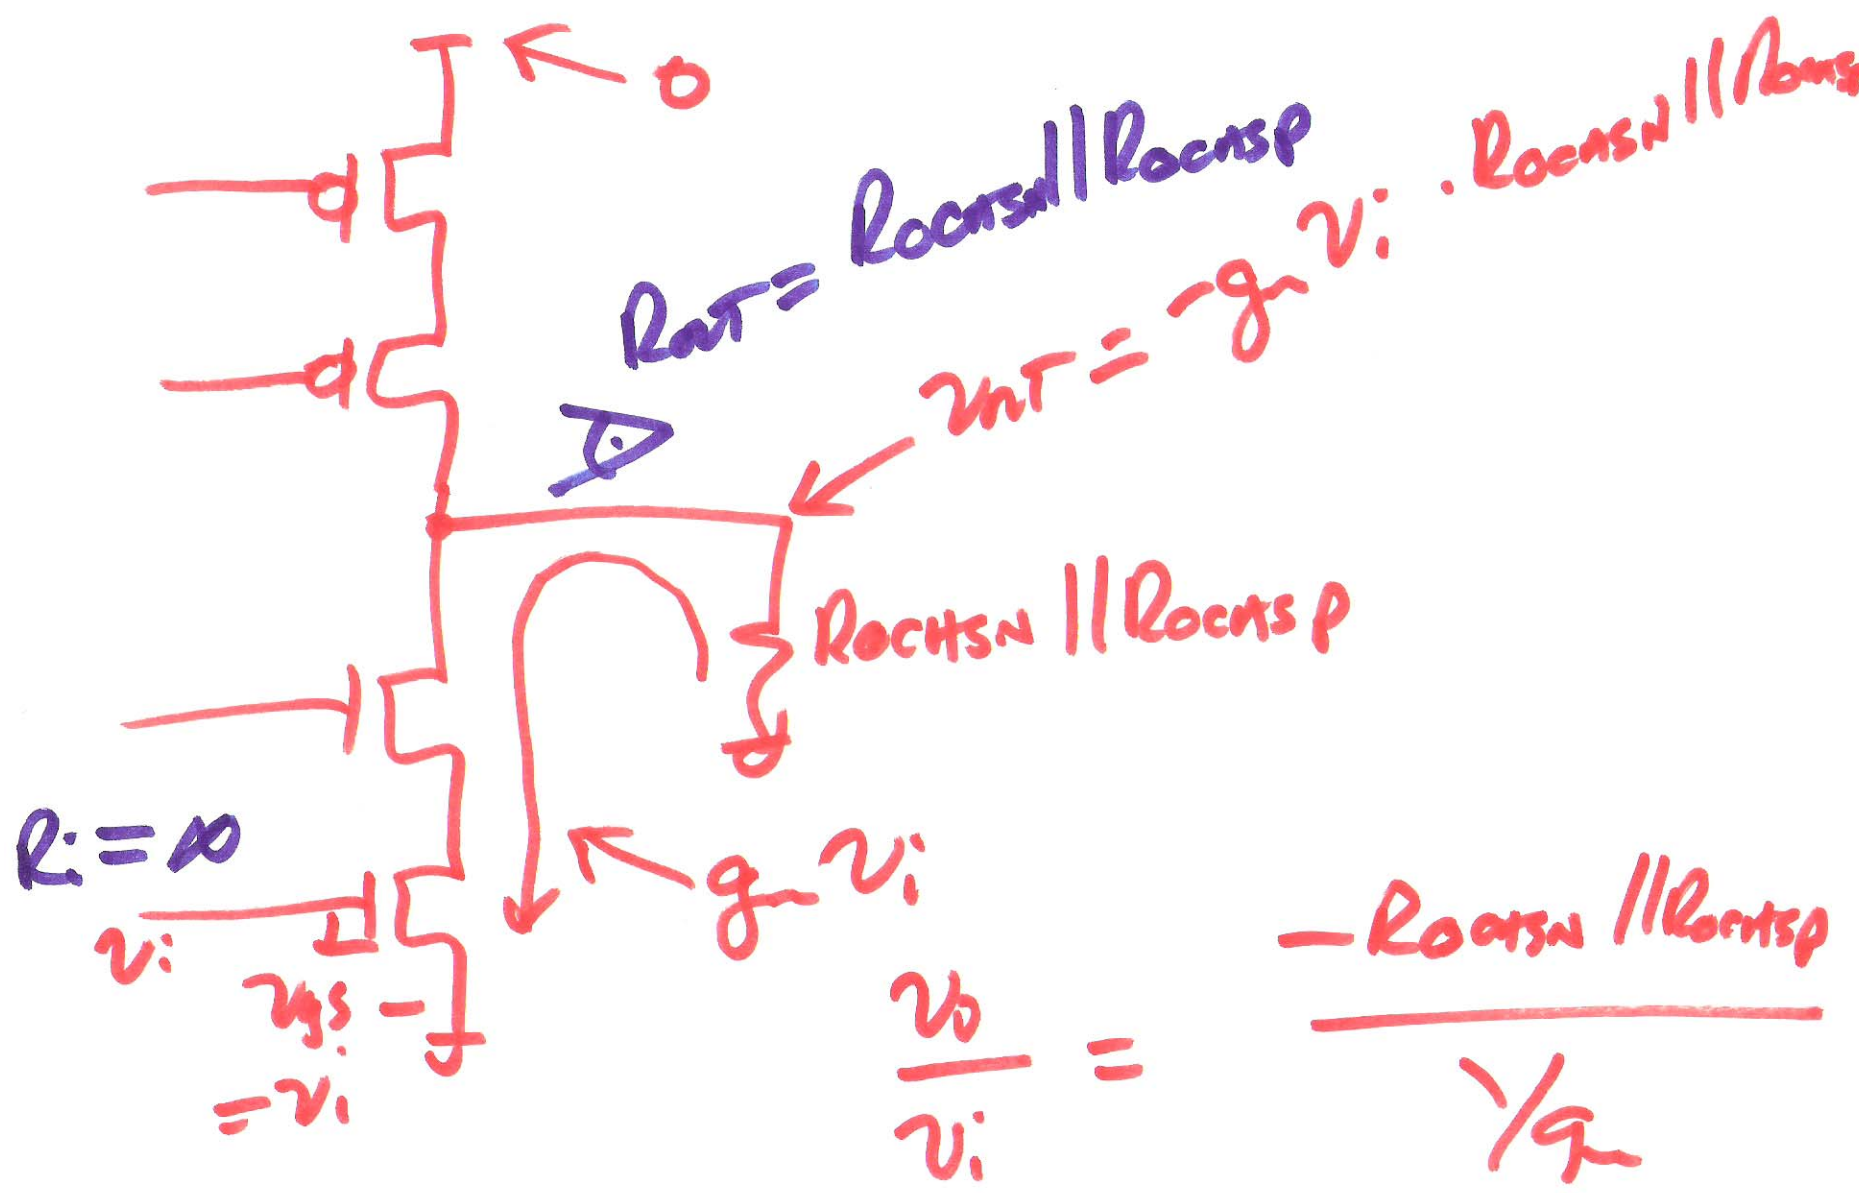 0
ROUT = ROCASN || ROCASP
vOUT = -gm vi · ROCASN || ROCASP
ROCASN || ROCASP
Ri = ∞
vi
gm vi
vgs -
= vi
vo / vi = - ROCASN || ROCASP / 1/gm